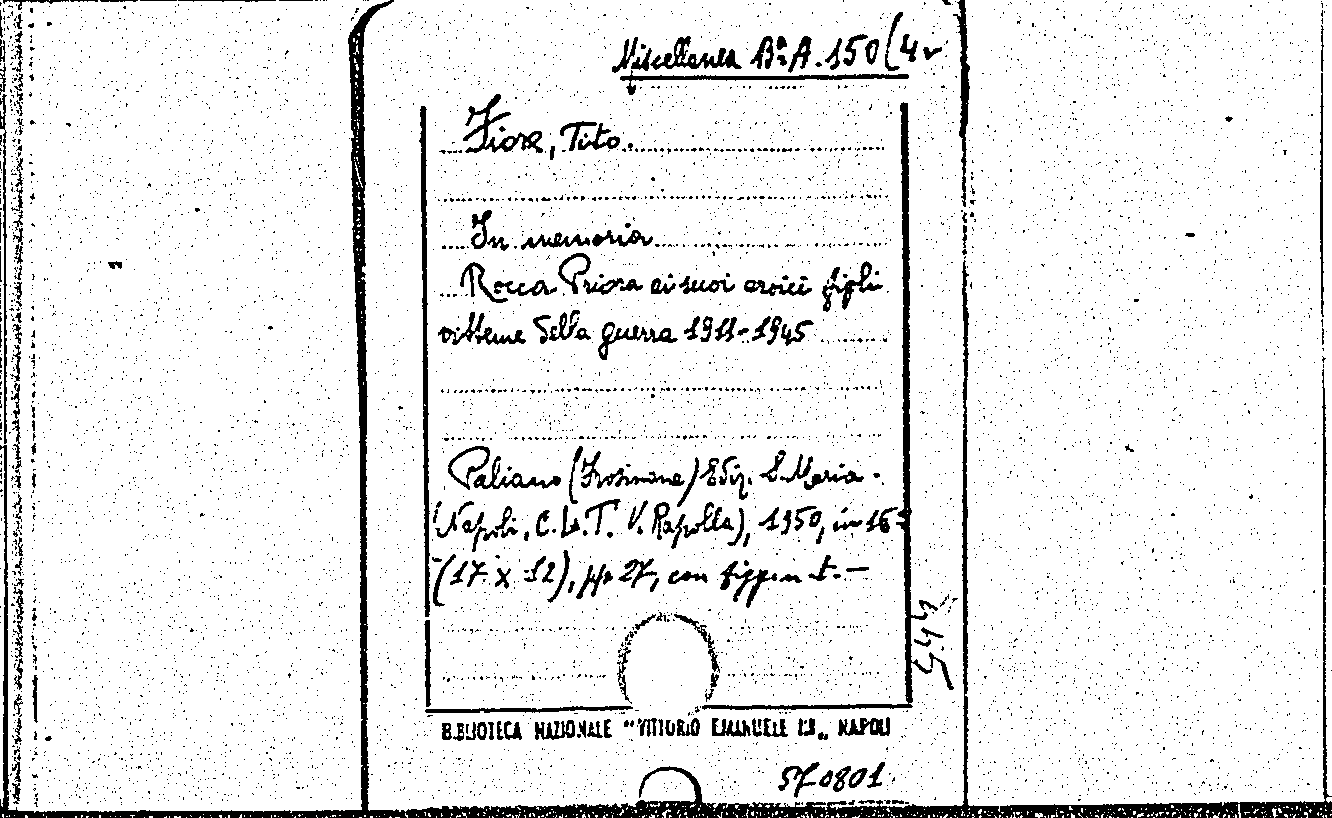 Miscellanea Bª A. 150(4
Fiore, Tito.
In memoria
Rocca Priora ai suoi eroici figli
vittime della guerra 1911-1945
Paliano (Frosinone) Ediz. S. Maria.
(Napoli, C. V. Rapolla), 1950, in 16º
(17 x 12), pp 27, con figg in t. —
544
BIBLIOTECA NAZIONALE "VITTORIO EMANUELE III„ NAPOLI
570801